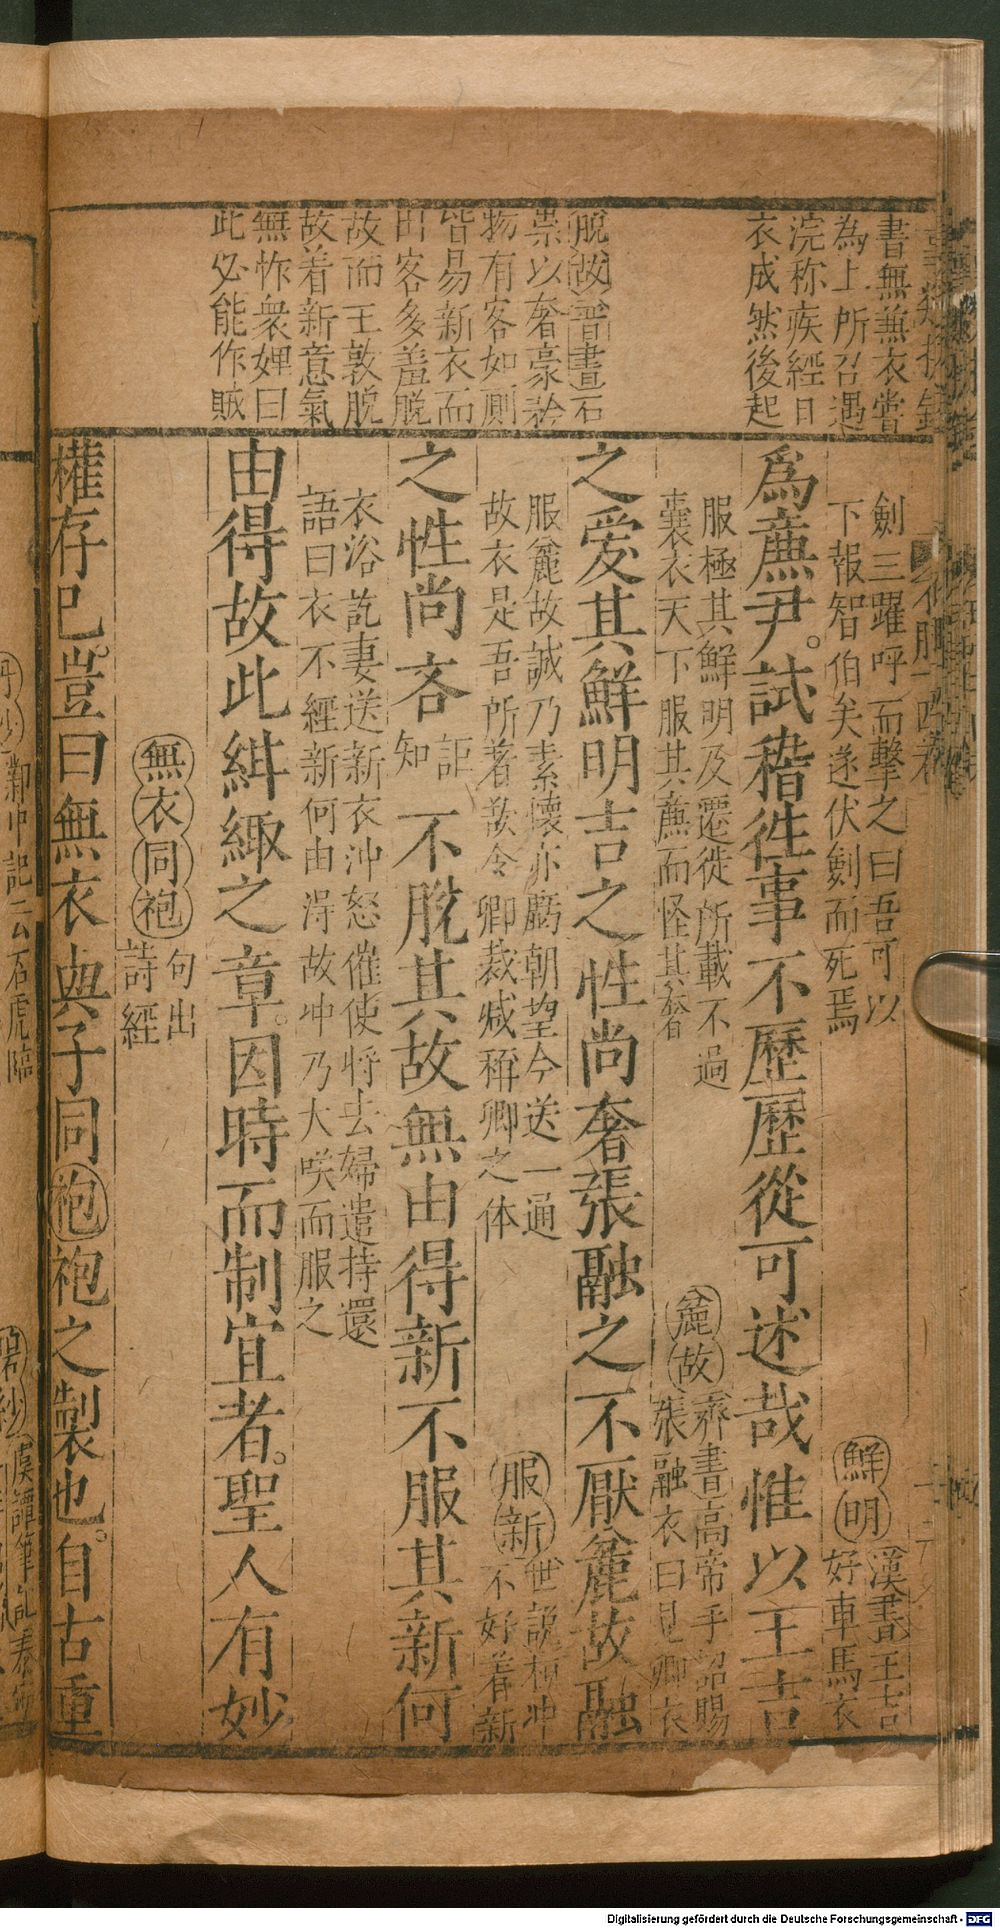 書無兼衣嘗
為上所召遇
浣称疾經日
衣成然後起
脫故晋書石
崇以奢豪矜
物有客如厠
皆易新衣而
出客多羞脫
故而王敦脫
故着新意氣
無怍衆婢曰
此必能作賊
劍三躍呼而擊之曰吾可以
下報智伯矣遂伏劍而死焉
鮮明
漢書王吉
好車馬衣
為廉尹。試稽徃事不歷歷從可述哉惟以王吉
服極其鮮明及遷徙所載不過
囊衣天下服其廉而怪其奢
麄故
齊書高帝手詔賜
張融衣曰見卿衣
之爱其鮮明吉之性尚奢張融之不厭麄故融
服麄故誠乃素懷亦虧朝望今送一通
故衣是吾所著故令卿裁減稱卿之体
服新
世説桓冲
不好着新
之性尚吝
詎
知
不脫其故無由得新不服其新何
衣浴訖妻送新衣沖怒催使将去婦遣持還
語曰衣不經新何由淂故冲乃大咲而服之
由得故此緝緅之章。因時而制宜者。聖人有妙
無衣同袍
句出
詩經
權存已。豈曰無衣與子同袍袍之製也。自古重
鄴中記云石虎臨
Digitalisierung gefördert durch die Deutsche Forschungsgemeinschaft - DFG